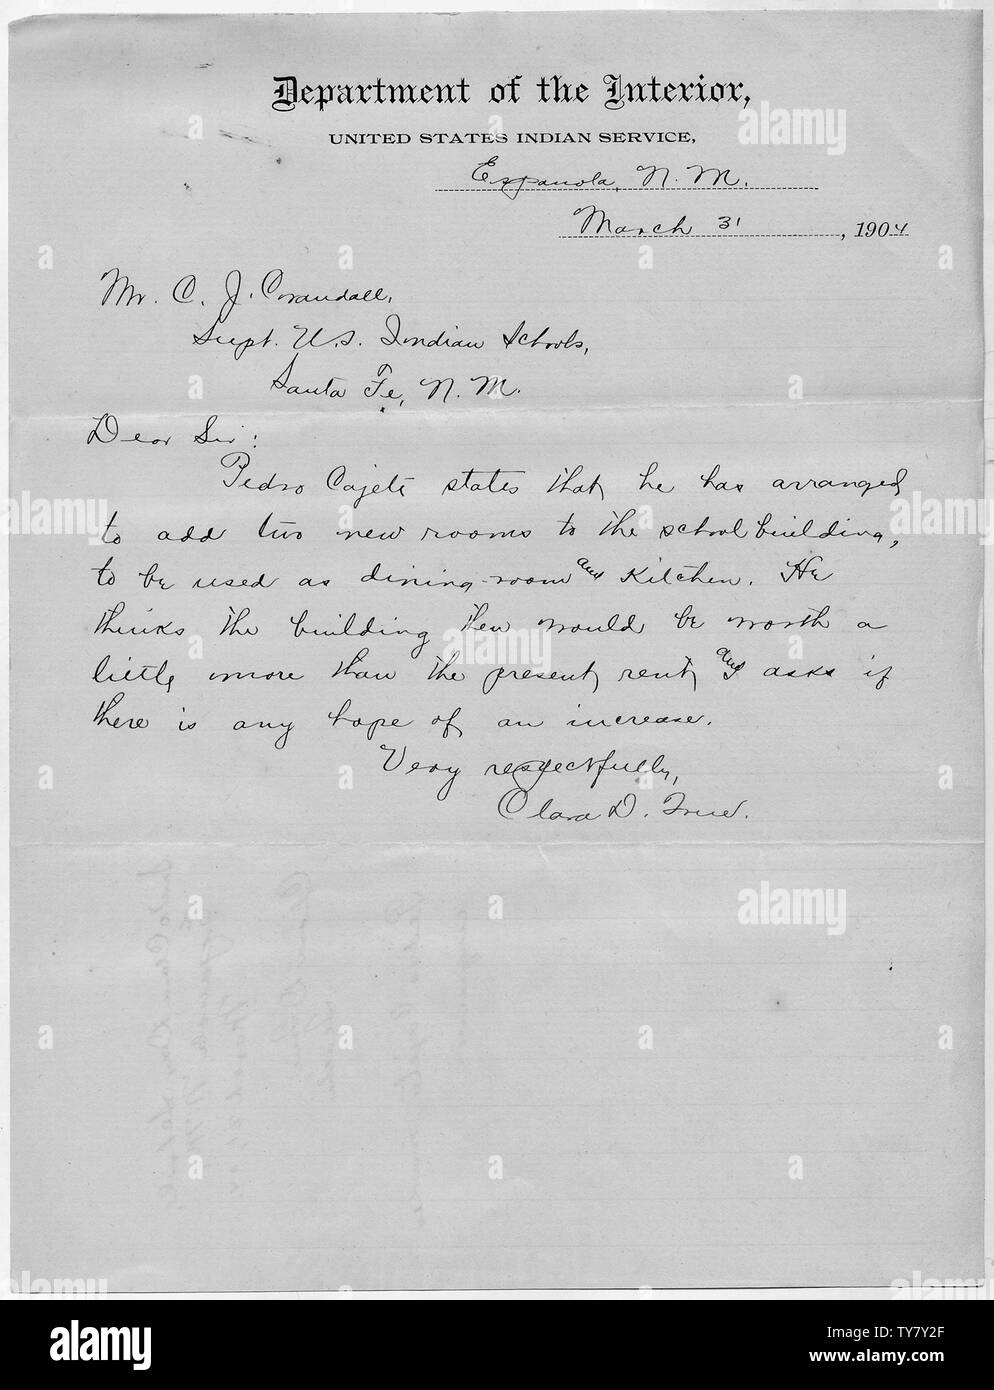 Department of the Interior,
UNITED STATES INDIAN SERVICE,
Espanola, N. M.
March 31, 1904
Mr. C. J. Crandall,
Supt. U.S. Indian Schools,
Santa Fe, N. M.
Dear Sir:
Pedro Cajete states that he has arranged
to add two new rooms to the school building,
to be used as dining-room and kitchen. He
thinks the building then would be worth a
little more than the present rent and asks if
there is any hope of an increase.
Very respectfully,
Clara D. True.
alamy
Image ID: TY7Y2F
www.alamy.com